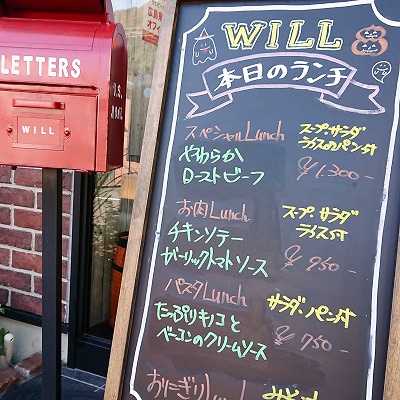 LETTERS
U.S. MAIL
WILL
WILL
本日のランチ
スペシャルLunch
スープ・サラダ
ライスorパン付
やわらか
ローストビーフ
¥1,300-
お肉Lunch
スープ・サラダ
ライス付
チキンソテー
ガーリックトマトソース
¥950-
パスタLunch
サラダ・パン付
たっぷりキノコと
ベーコンのクリームソース
¥750-
おにぎりLunch